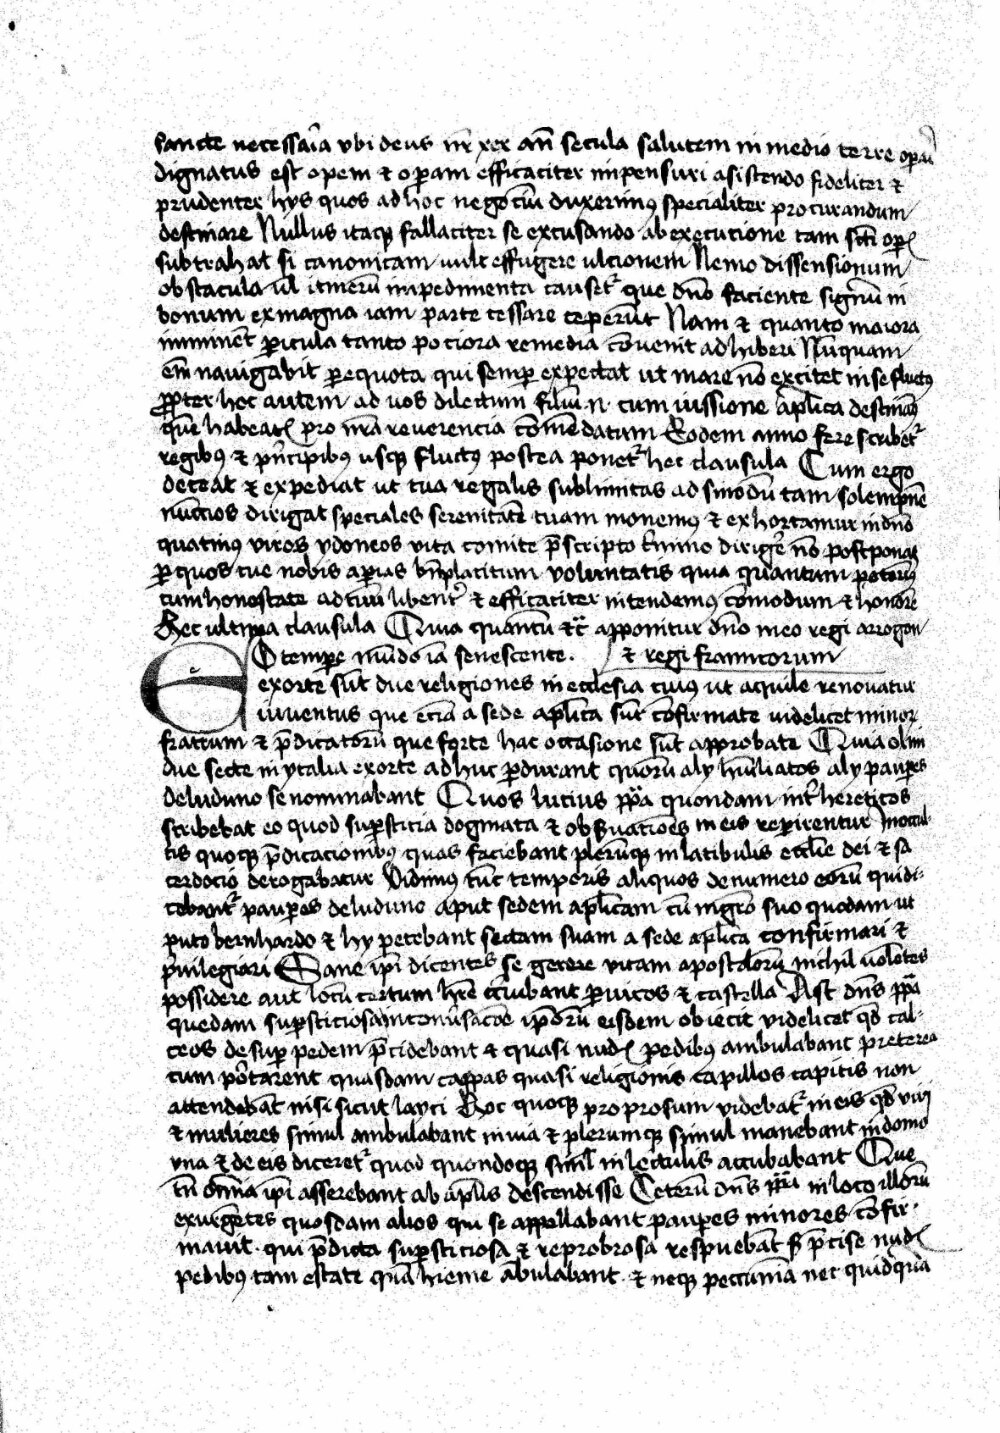 sancte necessaīa vbi deus nr̄ rex an̄ secula salutem in medio terre opari
dignatus est opem & opam efficaciter impensuri asistendo fideliter &
prudenter hys quos ad hoc negociū duxerimꝰ specialiter procurandum
destinare Nullus itaqꝫ fallaciter se excusando ab execucione tam scī opis
subtrahat si canonicam uult effugere ulcionem Nemo dissensionum
obstacula ul̄ itinerū impedimenta causet᷑ que dn̄o faciente signū in
bonum ex magna iam parte cessare ceperūt Nam & quanto maiora
iminēt picula tanto pociora remedia cōuenit adhiberi Nūquam
em̄ nauigabit per equora qui semp expectat ut mare nō excitet in se fluctꝰ
ꝓpter hoc autem ad uos dilectum filiū n. cum iussione aplica destinamꝰ
quē habeatis pro nr̄a reuerencia cōmendatum Eodem anno fere scribet᷑
regibꝰ & pncipibꝰ usqꝫ fluctꝰ postea ponet᷑ hec clausula Cum ergo
deceat & expediat ut tua regalis sublimitas ad sinodū tam solempnē
nūccios dirigat speciales serenitatē tuam monemꝰ & exhortamur in dn̄o
quatinꝰ viros ydoneos vita comite p̄scripto tmino dirige nō postponas
per quos tue nobis apias bn̄placitum voluntatis quia quantum poterimꝰ
cum honestate ad tuū libent᷑ & efficaciter intendemꝰ cōmodum & honorē
Hec ultima clausula Quia quantū &c̄ apponitur dn̄o meo regi arrogon
EO tempore mūdo iā senescente. & regi francorum
exorte sūt due religiones in ecclesia cuius ut aquile renouatur
iuuentus que eciā a sede aplica sūt cōfirmate videlicet minor
fratrum & p̄dicatorū que forte hac occasione sūt approbate Quia olim
due secte in ytalia exorte adhuc pdurant quorū aly hūiliatos aly paupes
de luduno se nominabant Quos lucius ppa quondam int᷑ hereticos
scribebat eo quod supsticia dogmata & obseruationes in eis repirentur In occul
tis quoqꝫ p̄dicacionibꝰ quas faciebant plerūqꝫ in latibulis ecclie dei & sa
cerdocio derogabatur Vidimꝰ tūc temporis aliquos de numero eorū qui di
cebant᷑ paupes de luduno aput sedem aplicam cū mgro suo quodam ut
puto bernhardo & hy petebant sectam suam a sede aplica confirmari &
priuilegiari Sane ipi dicentes se gerere vitam apostolorū nichil uolētes
possidere aut locū certum hr̄e circuibant p vicos & castella Ast dn̄s ppa
quedam supsticiosa in conuersacōe ipsorū eisdem obiecit videlicet qd cal-
ceos desup pedem p̄cidebant & quasi nudis pedibꝰ ambulabant preterea
cum portarent quasdam cappas quasi religionis capillos capitis non
attendebāt nisi sicut layci Hoc quoqꝫ pro prosum videbat᷑ in eis qd viri
& mulieres simul ambulabant in uia & plerumqꝫ simul manebant in domo
vna & de eis diceret᷑ quod quandoqꝫ siml̄ in lectulis accubabant Que
tn̄ omīa ipi asserebant ab aplis descendisse Ceterū dn̄s ppa in loco illorū
exurgētes quosdam alios qui se appellabant paupes minores cōfir-
mauit. qui p̄dicta supsticiosa & reprobrosa respuebāt s p̄cise nudis
pedibꝰ tam estate quā hieme ābulabant. & neqꝫ peccuniā nec quidquā